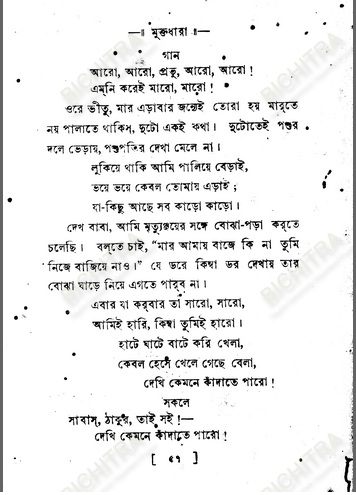 —॥ মুক্তধারা ॥—
গান
আরো, আরো, প্রভু, আরো, আরো!
এমনি করেই মারো, মারো!
ওরে ভীতু, মার এড়াবার জন্যেই তোরা হয় মরতে
নয় পালাতে থাকিস্, দুটো একই কথা। দুটোতেই পশুর
দলে ভেড়ায়, পশুপতির দেখা মেলে না।
লুকিয়ে থাকি আমি পালিয়ে বেড়াই,
ভয়ে ভয়ে কেবল তোমায় এড়াই;
যা-কিছু আছে সব কাড়ো কাড়ো।
দেখ বাবা, আমি মৃত্যুঞ্জয়ের সঙ্গে বোঝা-পড়া করতে
চলেছি। বলতে চাই, “মার আমায় বাজে কি না তুমি
নিজে বাজিয়ে নাও।” যে ডরে কিম্বা ডর দেখায় তার
বোঝা ঘাড়ে নিয়ে এগতে পারব না।
এবার যা করবার তা সারো, সারো,
আমিই হারি, কিম্বা তুমিই হারো।
হাটে ঘাটে বাটে করি খেলা,
কেবল হেসে খেলে গেছে বেলা,
দেখি কেমনে কাঁদাতে পারো!
সকলে
সাবাস্, ঠাকুর, তাই সই!—
দেখি কেমনে কাঁদাতে পারো!
BICHITRA